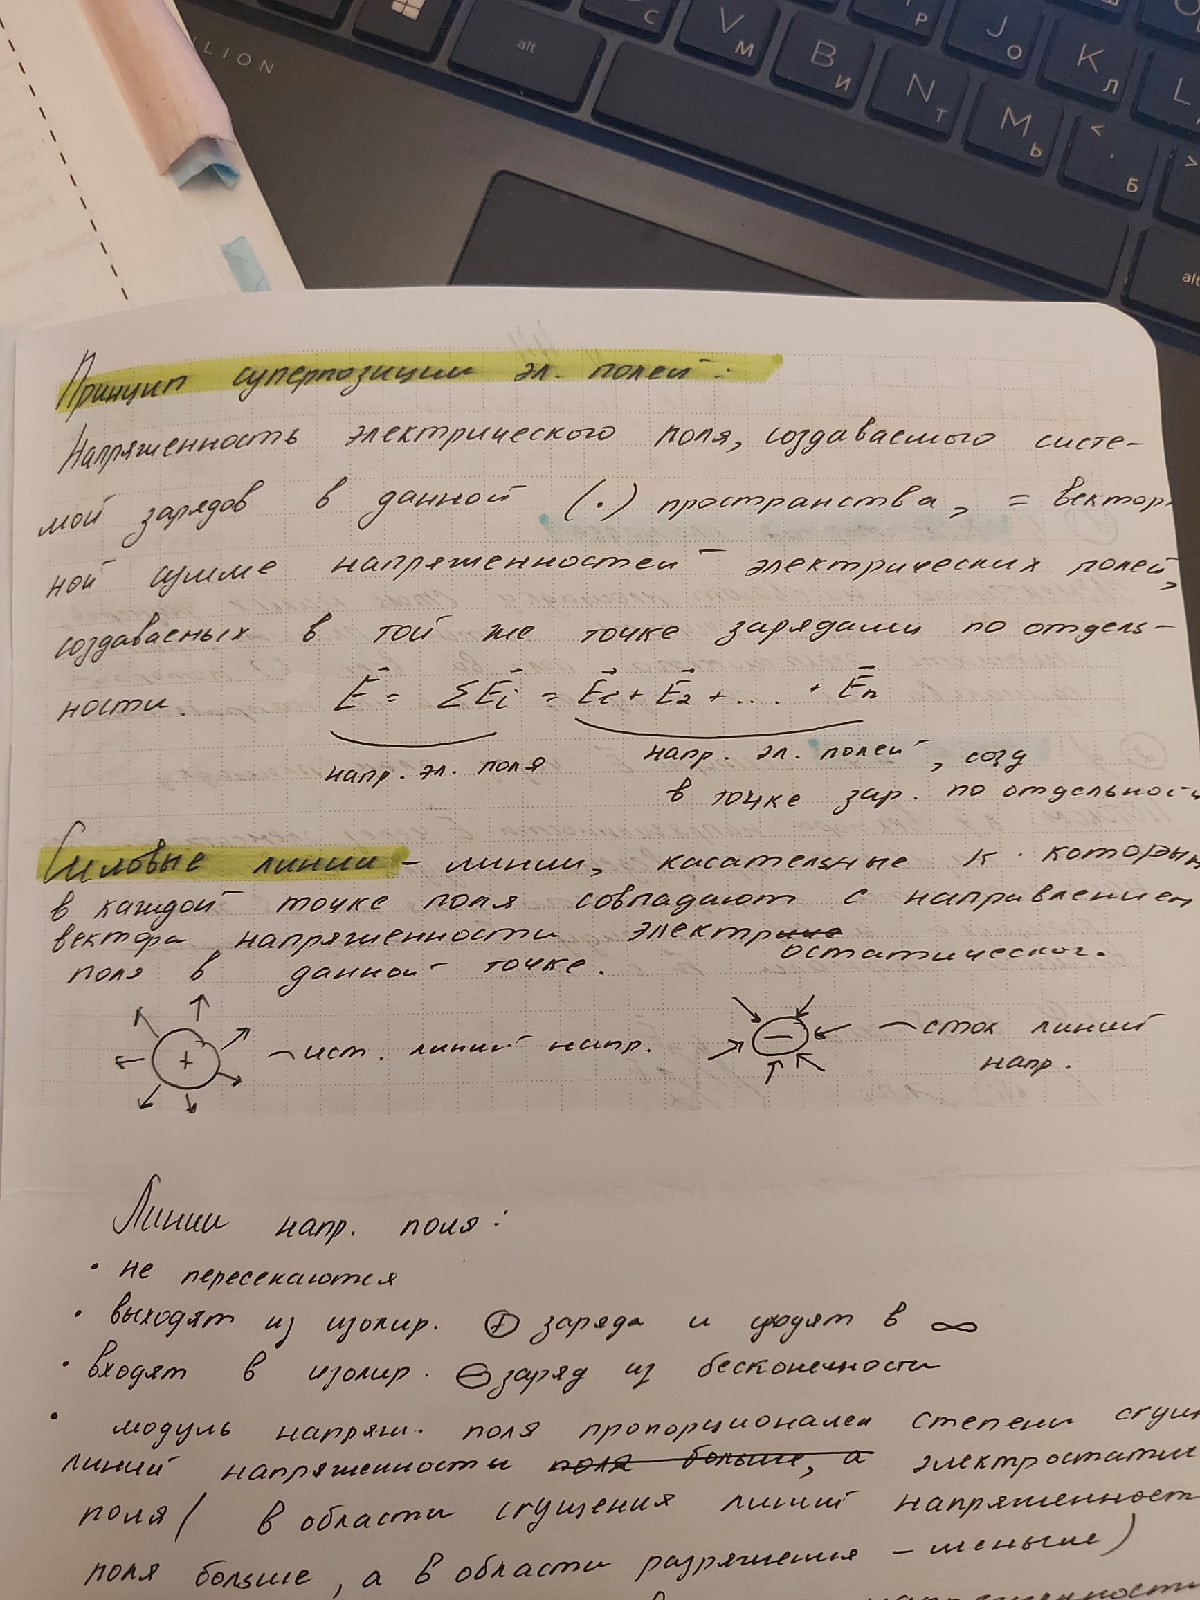 LION
alt
C
V М
B И
N Т
M Ь
P
J О
K Л
L
< , Б
>
alt
Принцип суперпозиции эл. полей:
Напряженность электрического поля, создаваемого систе-
мой зарядов в данной (·) пространства, = вектор-
ной сумме напряженностей электрических полей,
создаваемых в той же точке зарядами по отдель-
ности. E⃗ = ΣE⃗i = E⃗1 + E⃗2 + ... + E⃗n
напр. эл. поля
напр. эл. полей, созд
в точке зар. по отдельности
Силовые линии – линии, касательные к которым
в каждой точке поля совпадают с направлением
вектора напряженности электростатическог.
поля в данной точке.
+ – ист. линий напр.
− – сток линий
напр.
Линии напр. поля:
• не пересекаются
• выходят из изолир. ⊕ заряда и уходят в ∞
• входят в изолир. ⊖ заряд из бесконечности
• модуль напряж. поля пропорционален степени сгущ
линий напряженности поля больше, а электростатич
поля ( в области сгущения линий напряженност
поля больше, а в области разряжения – меньше)
напряженности